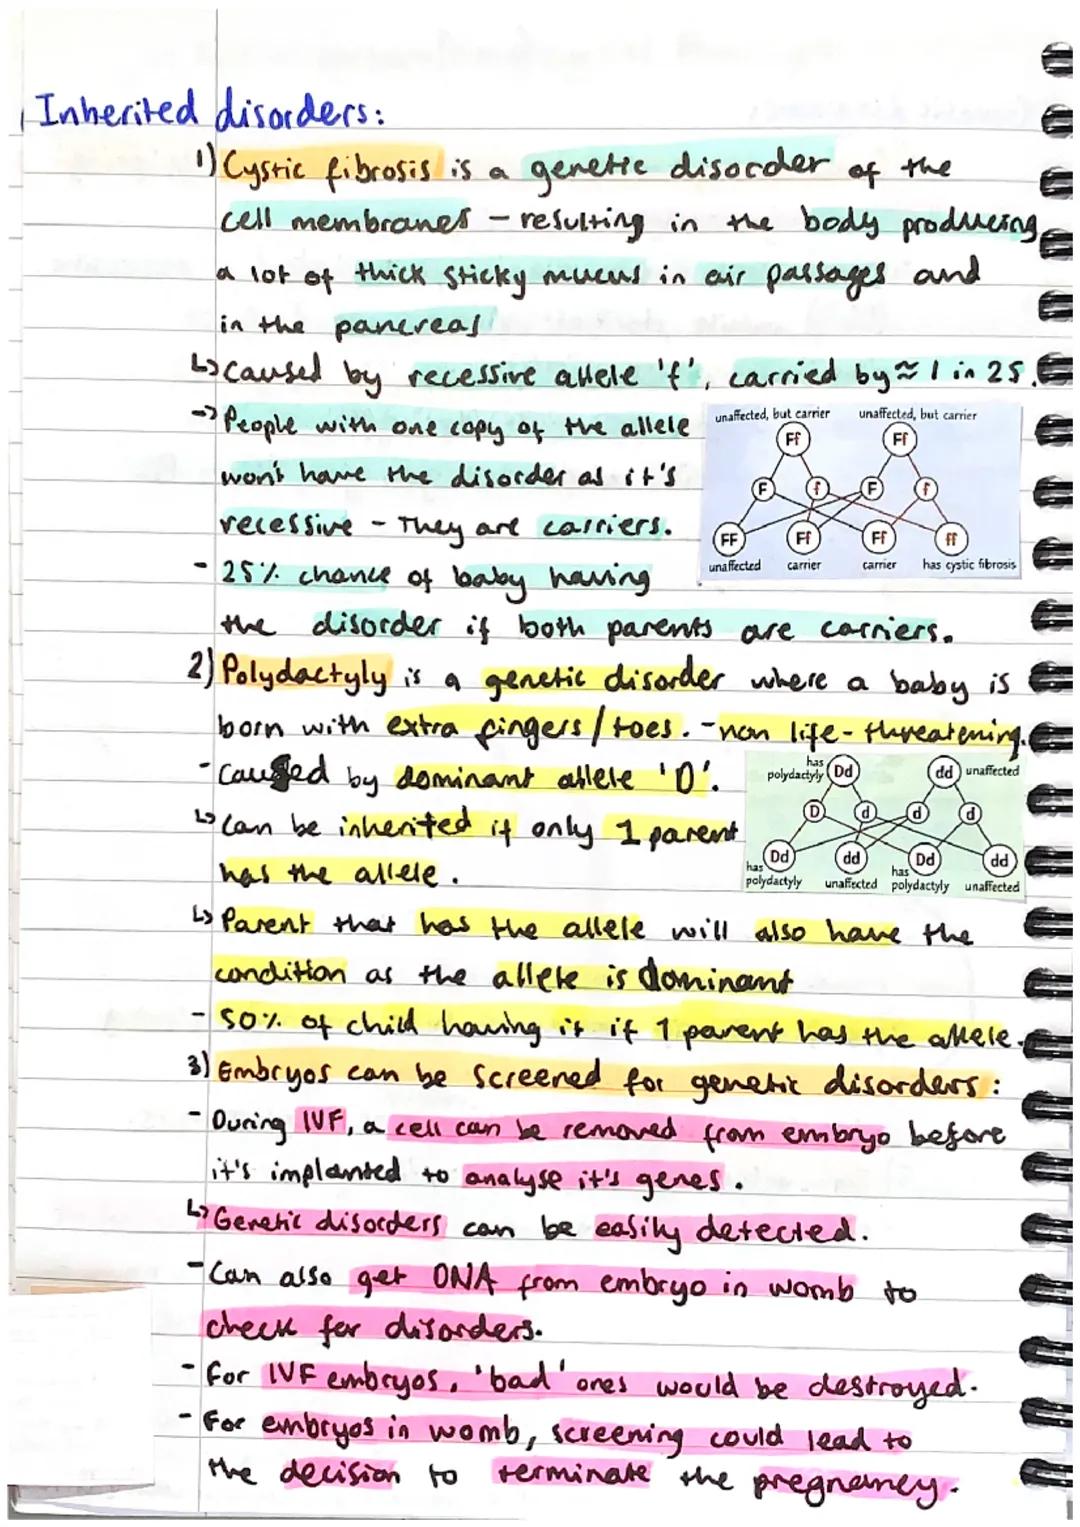 Inherited disorders:
1) Cystic fibrosis is a genetic disorder of the
cell membranes – resulting in the body producing
a lot of thick sticky mucus in air passages and
in the pancreas
↳ Caused by recessive allele 'f', carried by ≈ 1 in 25.
-> People with one copy of the allele
won't have the disorder as it's
recessive - They are carriers.
- 25% chance of baby having
the disorder if both parents are carriers.
unaffected, but carrier unaffected, but carrier
Ff Ff
F f F f
FF Ff Ff ff
unaffected carrier carrier has cystic fibrosis
2) Polydactyly is a genetic disorder where a baby is
born with extra fingers / toes. - non life-threatening.
- Caused by dominant allele 'D'.
↳ Can be inherited if only 1 parent
has the allele.
has polydactyly Dd dd unaffected
D d d d
Dd dd Dd dd
has polydactyly unaffected has polydactyly unaffected
↳ Parent that has the allele will also have the
condition as the allele is dominant
- 50% of child having it if 1 parent has the allele.
3) Embryos can be screened for genetic disorders:
- During IVF, a cell can be removed from embryo before
it's implanted to analyse it's genes.
↳ Genetic disorders can be easily detected.
- Can also get DNA from embryo in womb to
check for disorders.
- For IVF embryos, 'bad' ones would be destroyed.
- For embryos in womb, screening could lead to
the decision to terminate the pregnancy.